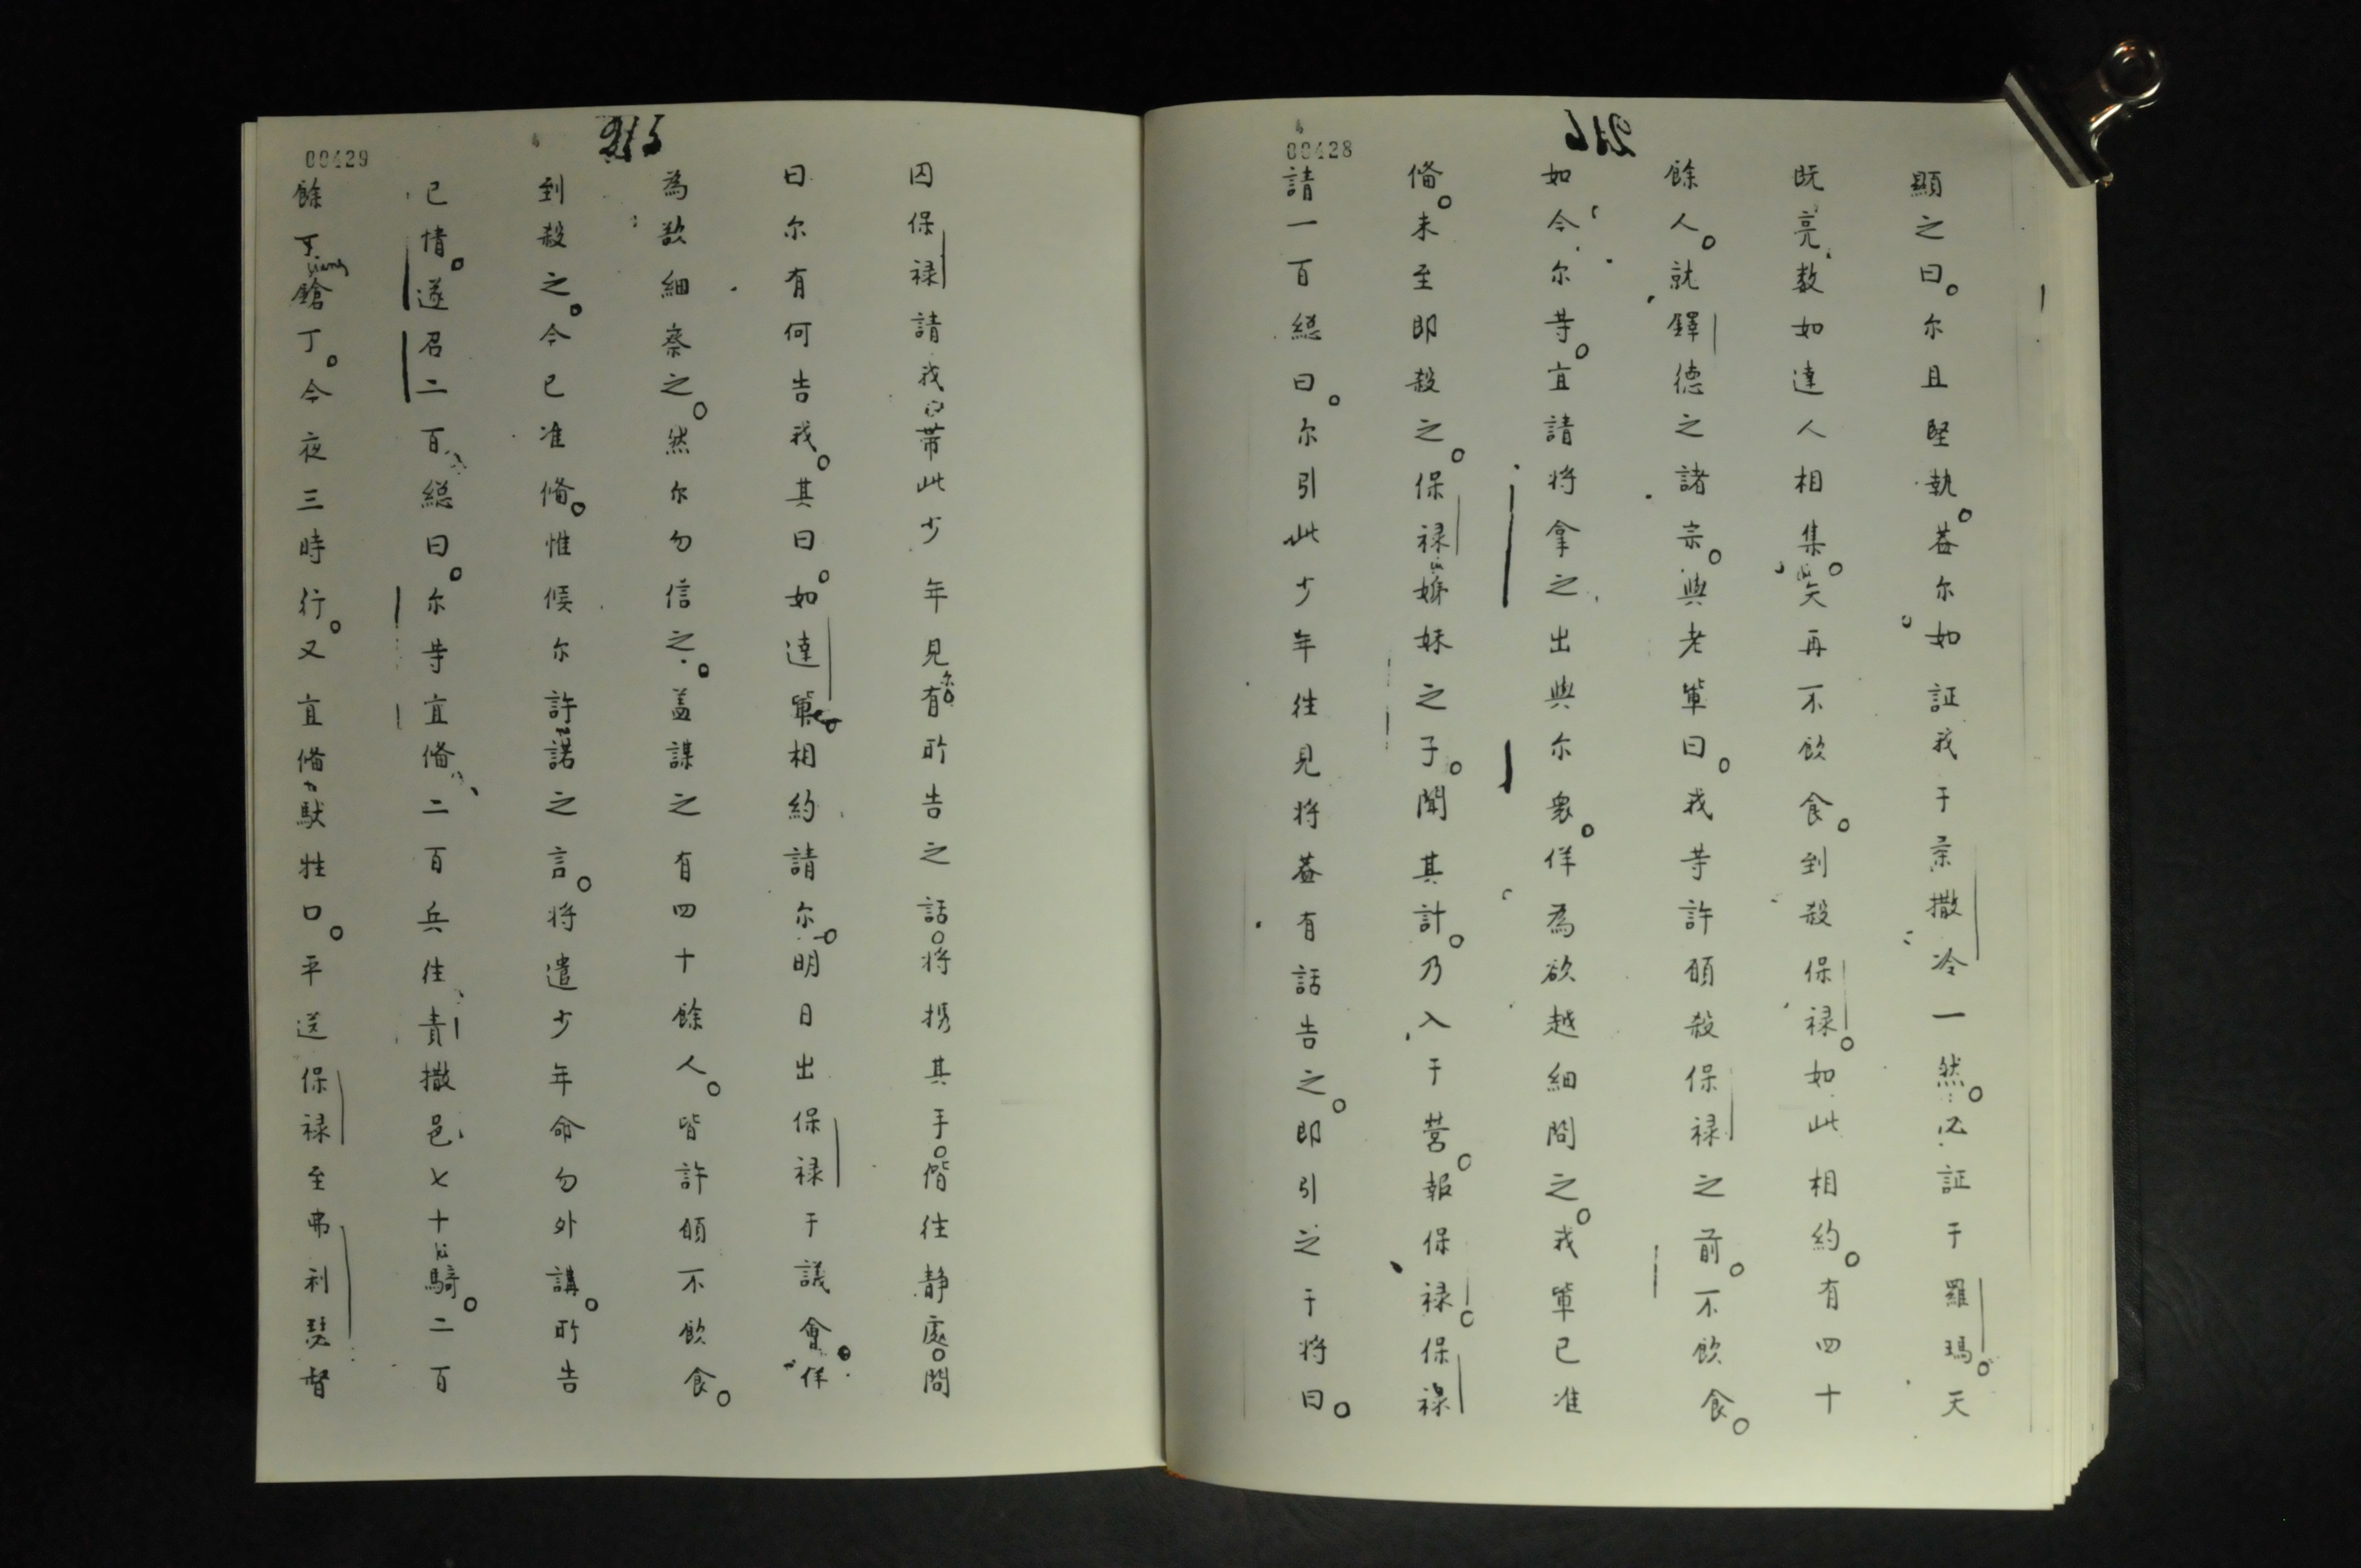 00428
216
顯之曰。尔且堅執。盖尔如証我于柔撒冷一然。必証于羅瑪。天
既亮数如達人相集。矢再不飲食。到殺保禄。如此相約。有四十
餘人。就鐸德之諸宗。與老軰曰。我等許頠殺保禄之前。不飲食。
如今尔等。宜請将拿之出與尔衆。佯為欲越細問之。我軰已准
俻。未至即殺之。保禄姊妹之子。聞其計。乃入于营。報保禄。保禄
請一百縂曰。尔引此少年徃見将盖有話告之。即引之于将曰。
00429
215
囚保禄請我帯此少年見尔。有所告之話。将携其手。偕徃静處。問
曰尔有何告我。其曰。如達軰相約請尔。明日出保禄于議會。佯
為欲細察之。然尔勿信之。盖謀之有四十餘人。皆許頠不飲食。
到殺之。今已准俻。惟候尔許諾之言。将遣少年命勿外講。所告
已情。遂召二百縂曰。尔等宜俻二百兵徃責撒邑七十騎。二百
餘丁鎗丁。今夜三時行。又宜俻馱牲口。平送保禄至弗利瑟督